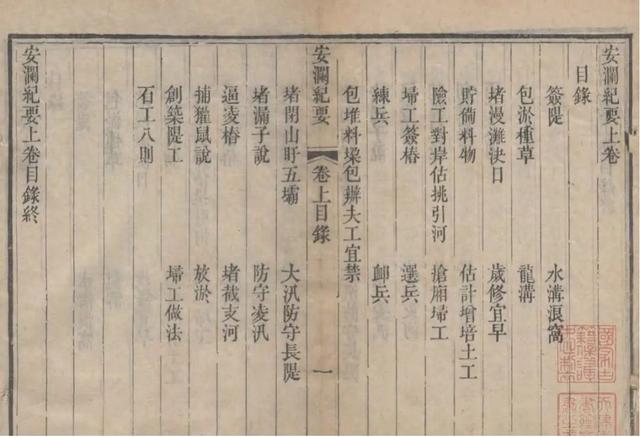 安瀾紀要上卷
目錄
簽隄 水溝浪窩
包淤種草 龍溝
堵漫灘決口 歲修宜早
貯備料物 估計增培土工
險工對岸估挑引河 搶廂埽工
埽工簽樁 選兵
練兵 䘏兵
包堆料垜包辦夫工宜禁
安瀾紀要 卷上目錄 一
堵閉山盱五壩 大汛防守長隄
堵漏子說 防守凌汛
逼凌樁 堵截支河
捕獾鼠說 放淤
創築隄工 埽工做法
石工八則
安瀾紀要上卷目錄終